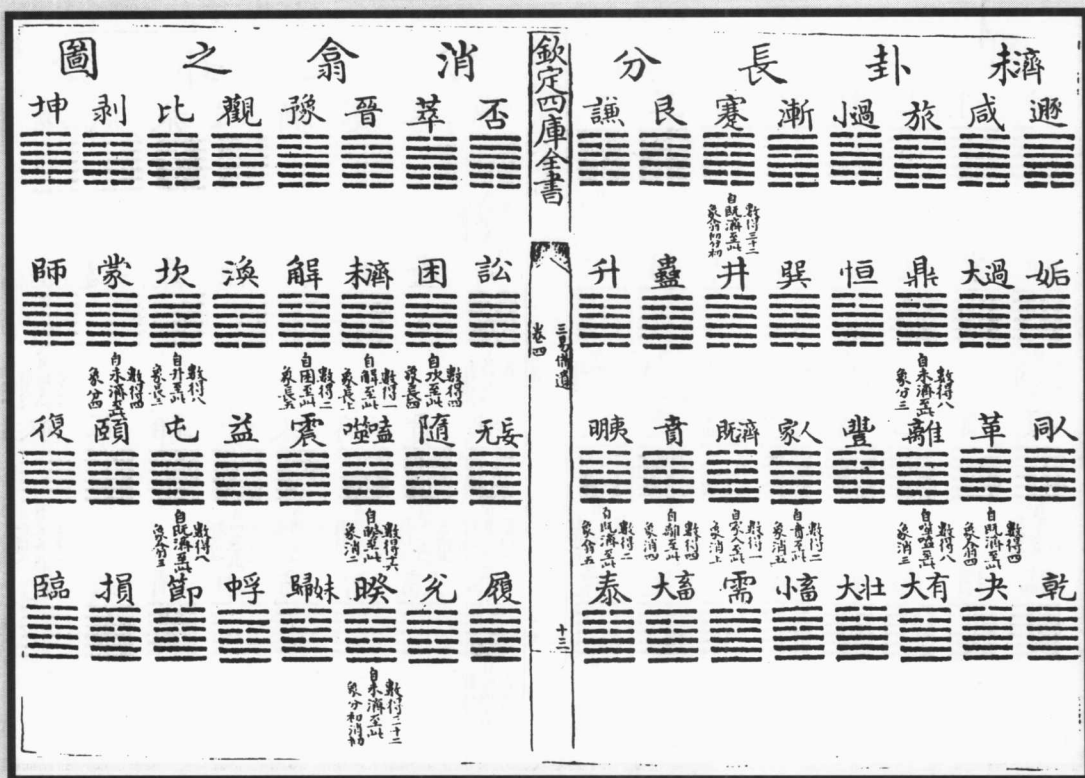 未濟卦長分
遯 咸 旅 小過 漸 蹇 艮 謙
數得三十二
自既濟至此
象翕初分初
姤 大過 鼎 恒 巽 井 蠱 升
數得八
自未濟至此
象分三
同人 革 離 豐 家人 既濟 賁 明夷
數得四
自既濟至此
象翕四
數得八
自噬嗑至此
象消三
數得二
自賁至此
象消五
數得一
自家人至此
象消上
數得四
自離至此
象消四
數得二
自既濟至此
象翕五
乾 夬 大有 大壯 小畜 需 大畜 泰
欽定四庫全書
三易備遺
卷四
十三
消翕之圖
否 萃 晉 豫 觀 比 剥 坤
訟 困 未濟 解 渙 坎 蒙 師
數得四
自坎至此
象長四
數得一
自解至此
象長上
數得二
自困至此
象長五
數得八
自井至此
象長三
數得四
自未濟至此
象分四
无妄 隨 噬嗑 震 益 屯 頤 復
數得十六
自睽至此
象消二
數得八
自既濟至此
象翕三
履 兌 睽 歸妹 中孚 節 損 臨
數得三十二
自未濟至此
象分初消初